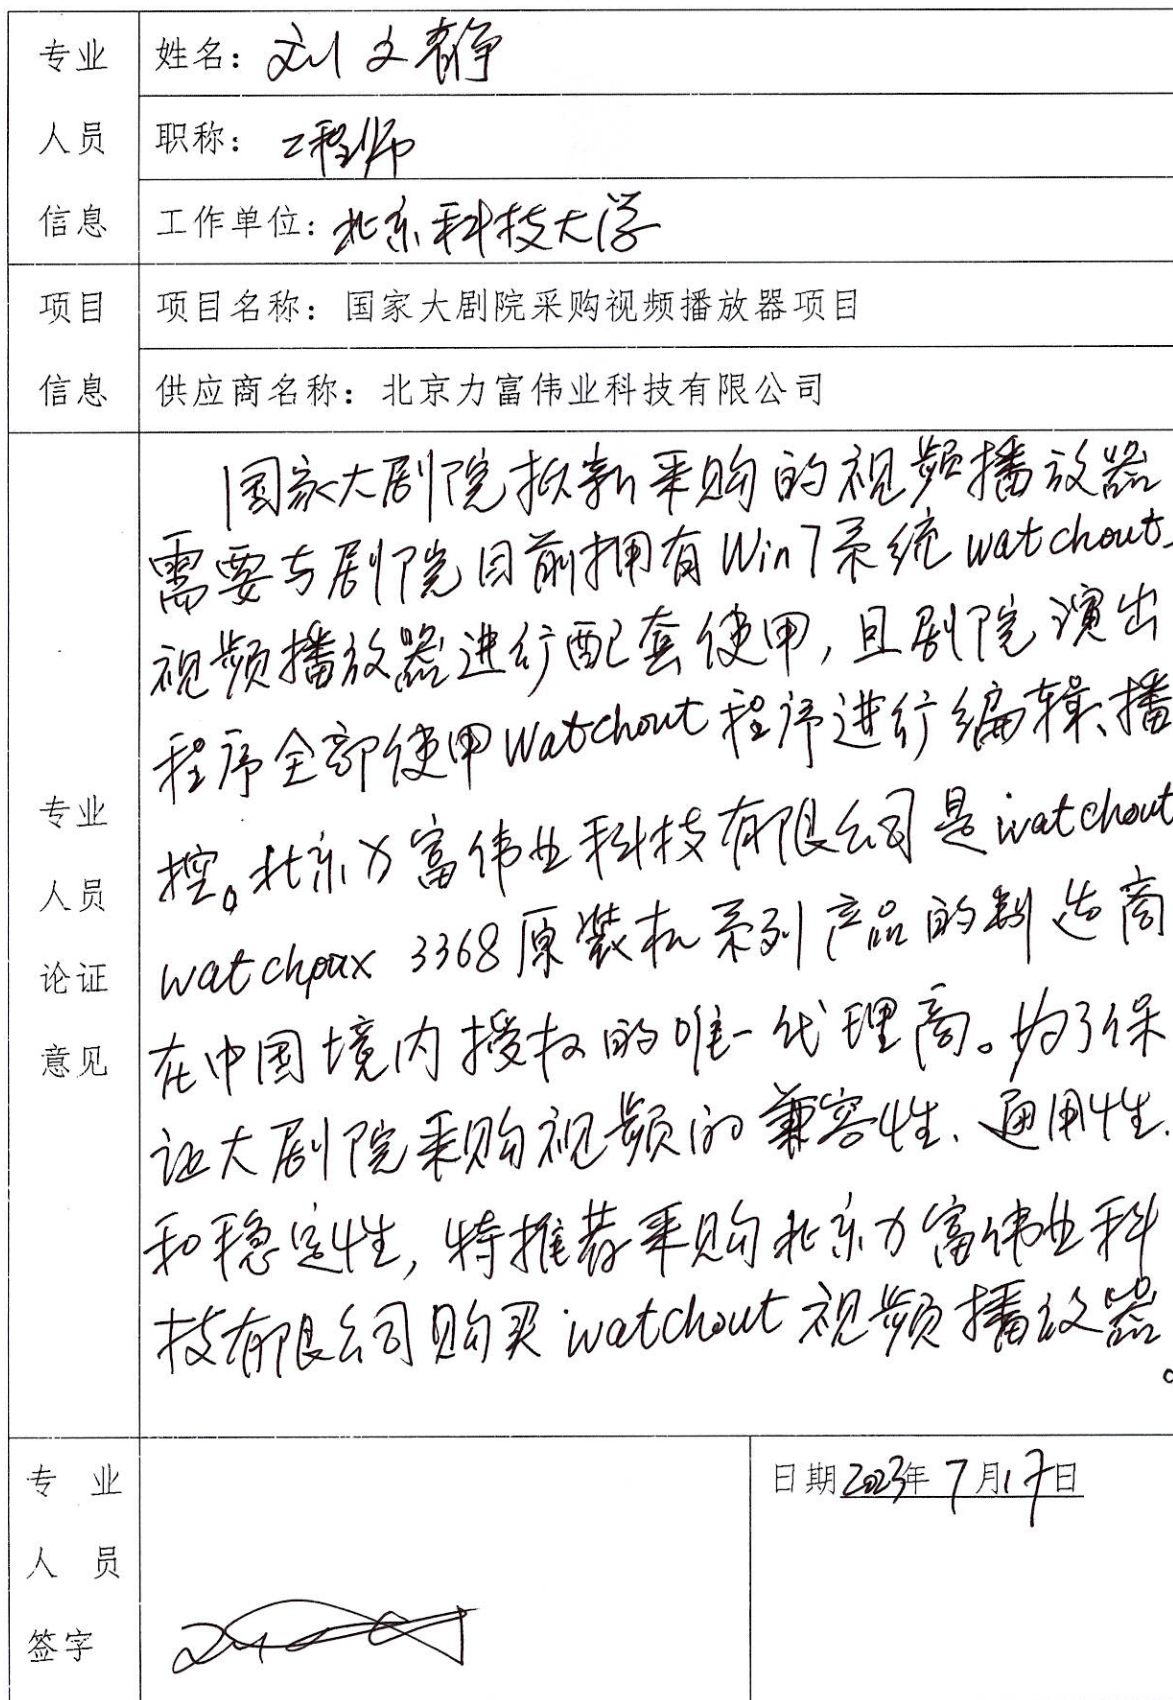 专业
人员
信息
姓名：刘文静
职称：工程师
工作单位：北京科技大学
项目
信息
项目名称：国家大剧院采购视频播放器项目
供应商名称：北京力富伟业科技有限公司
专业
人员
论证
意见
国家大剧院拟新采购的视频播放器
需要与剧院目前拥有Win7系统watchout
视频播放器进行配套使用，且剧院演出
程序全部使用Watchout程序进行编辑、播
控。北京力富伟业科技有限公司是watchout
watchpax 3368原装机系列产品的制造商
在中国境内授权的唯一代理商。为了保
证大剧院采购视频的兼容性、通用性
和稳定性，特推荐采购北京力富伟业科
技有限公司购买watchout视频播放器
。
专 业
人 员
签字
日期2023年7月17日